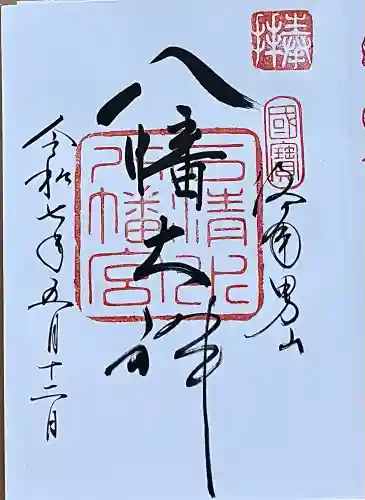 奉拝
國寶
洛南男山
八幡大神
石清水
八幡宮
令和七年五月十二日